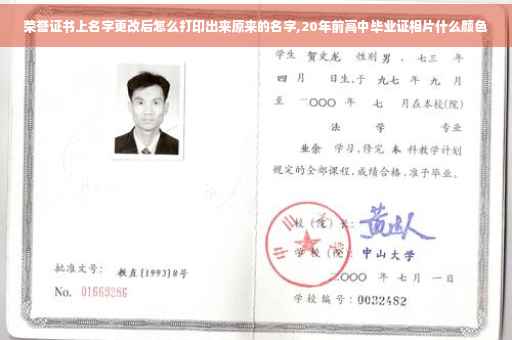 荣誉证书上名字更改后怎么打印出来原来的名字,20年前高中毕业证相片什么颜色
学生 贺文龙 性别 男 、七三 年
四 月 日生,于 九七 年 九 月
至 二〇〇〇 年 七 月在本校(院)
法 学 专业
业余 学习,修完 本 科教学计划
规定的全部课程,成绩合格,准予毕业。
校 (院) 长:
学 校 (院): 中山大学
批准文号: 教直[1993]8号
二〇〇〇 年 七 月 一 日
No. 01669286
学校编号: 0032482